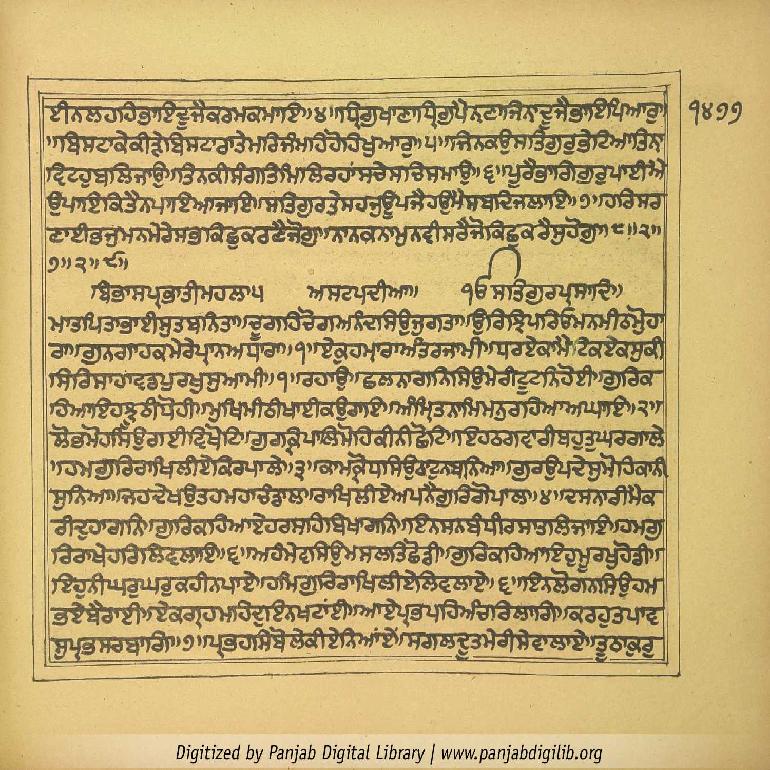 ੧੪੭੭
ਈਨਲਹਹਿਭਾਇਦੂਜੈਕਰਮਕਮਾਇ॥੪॥ਧ੍ਰਿਗੁਖਾਣਾਧ੍ਰਿਗੁਪੈਨਣਾਜਿਨਾਦੂਜੈਭਾਇਪਿਆਰੁ
॥ਬਿਸਟਾਕੇਕੀੜੇਬਿਸਟਾਰਾਤੇਮਰਿਜੰਮਹਿਹੋਹਿਖੁਆਰੁ॥੫॥ਜਿਨਕਉਸਤਿਗੁਰੁਭੇਟਿਆਤਿਨਾ
ਵਿਟਹੁਬਲਿਜਾਉ॥ਤਿਨਕੀਸੰਗਤਿਮਿਲਿਰਹਾਂਸਚੇਸਚਿਸਮਾਉ॥੬॥ਪੂਰੈਭਾਗਿਗੁਰੁਪਾਈਐ
ਉਪਾਇਕਿਤੈਨਪਾਇਆਜਾਇ॥ਸਤਿਗੁਰਤੇਸਹਜੁਊਪਜੈਹਉਮੈਸਬਦਿਜਲਾਇ॥੭॥ਹਰਿਸਰ
ਣਾਈਭਜੁਮਨਮੇਰੇਸਭਕਿਛੁਕਰਣੈਜੋਗੁ॥ਨਾਨਕਨਾਮੁਨਵੀਸਰੈਜੋਕਿਛੁਕਰੈਸੁਹੋਗੁ॥੮॥੨॥
੭॥੨॥੯॥
ਬਿਭਾਸਪ੍ਰਭਾਤੀਮਹਲਾ੫ ਅਸਟਪਦੀਆ॥ ੴਸਤਿਗੁਰਪ੍ਰਸਾਦਿ॥
ਮਾਤਪਿਤਾਭਾਈਸੁਤਬਨਿਤਾ॥ਚੂਗਹਿਚੋਗਅਨੰਦਸਿਉਜੁਗਤਾ॥ਉਰਝਿਪਰਿਓਮਨਮੀਠਮੋੁਹਾ
ਰਾ॥ਗੁਨਗਾਹਕਮੇਰੇਪ੍ਰਾਨਅਧਾਰਾ॥੧॥ਏਕੁਹਮਾਰਾਅੰਤਰਜਾਮੀ॥ਧਰਏਕਾਮੈਟਿਕਏਕਸੁਕੀ
ਸਿਰਿਸਾਹਾਵਡਪੁਰਖੁਸੁਆਮੀ॥੧॥ਰਹਾਉ॥ਛਲਨਾਗਨਿਸਿਉਮੇਰੀਟੂਟਨਿਹੋਈ॥ਗੁਰਿਕ
ਹਿਆਇਹਝੂਠੀਧੋਹੀ॥ਮੁਖਿਮੀਠੀਖਾਈਕਉਰਾਇ॥ਅੰਮ੍ਰਿਤਨਾਮਿਮਨੁਰਹਿਆਅਘਾਇ॥੨॥
ਲੋਭਮੋਹਸਿਉਗਈਵਿਖੋਟਿ॥ਗੁਰਕ੍ਰਿਪਾਲਿਮੋਹਿਕੀਨੀਛੋਟਿ॥ਇਹਠਗਵਾਰੀਬਹੁਤੁਘਰਗਾਲੇ
॥ਹਮਗੁਰਿਰਾਖਿਲੀਏਕਿਰਪਾਲੇ॥੩॥ਕਾਮਕ੍ਰੋਧਸਿਉਠਾਟੁਨਬਨਿਆ॥ਗੁਰਉਪਦੇਸੁਮੋਹਿਕਾਨੀ
ਸੁਨਿਆ॥ਜਹਦੇਖਉਤਹਮਹਾਚੰਡਾਲ॥ਰਾਖਿਲੀਏਅਪਨੈਗੁਰਿਗੋਪਾਲ॥੪॥ਦਸਨਾਰੀਮੈਕ
ਰੀਦੁਹਾਗਨਿ॥ਗੁਰਿਕਹਿਆਏਹਰਸਹਿਬਿਖਾਗਨਿ॥ਇਨਸਨਬੰਧੀਰਸਾਤਲਿਜਾਇ॥ਹਮਗੁ
ਰਿਰਾਖੇਹਰਿਲਿਵਲਾਇ॥੬॥ਅਹੰਮੇਵਸਿਉਮਸਲਤਿਛੋਡੀ॥ਗੁਰਿਕਹਿਆਇਹੁਮੂਰਖੁਹੋਡੀ॥
ਇਹੁਨੀਘਰੁਘਰੁਕਹੀਨਪਾਏ॥ਹਮਗੁਰਿਰਾਖਿਲੀਏਲਿਵਲਾਏ॥੬॥ਇਨਲੋਗਨਸਿਉਹਮ
ਭਏਬੈਰਾਈ॥ਏਕਗ੍ਰਿਹਮਹਿਦੁਇਨਖਟਾਂਈ॥ਆਏਪ੍ਰਭਪਹਿਅੰਚਰਿਲਾਗਿ॥ਕਰਹੁਤਪਾਵ
ਸੁਪ੍ਰਭਸਰਬਾਗਿ॥੭॥ਪ੍ਰਭਹਸਿਬੋਲੇਕੀਏਨਿਆਂਏਂ॥ਸਗਲਦੂਤਮੇਰੀਸੇਵਾਲਾਏ॥ਤੂੰਠਾਕੁਰੁ
Digitized by Panjab Digital Library | www.panjabdigilib.org